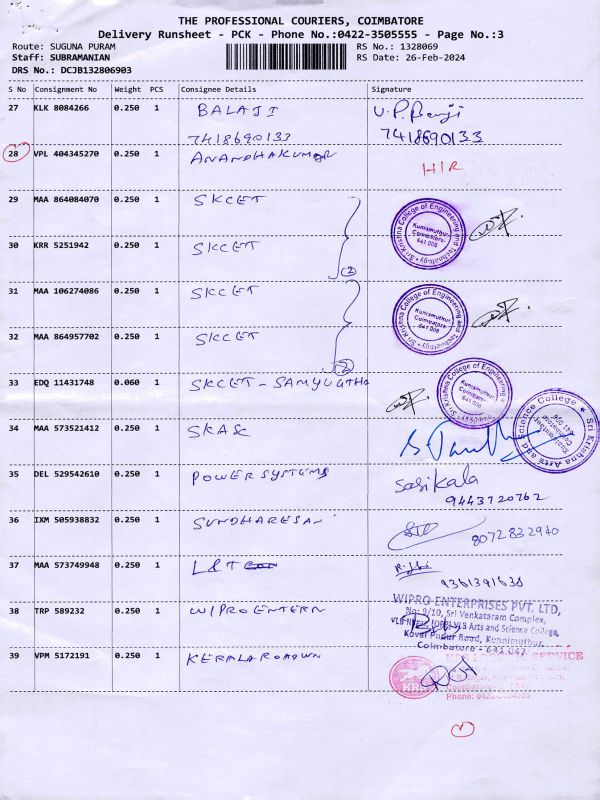 THE PROFESSIONAL COURIERS, COIMBATORE
Delivery Runsheet - PCK - Phone No.:0422-3505555 - Page No.:3
Route: SUGUNA PURAM RS No.: 1328069
Staff: SUBRAMANIAN RS Date: 26-Feb-2024
DRS No.: DCJB132806903
S No Consignment No Weight PCS Consignee Details Signature
27 KLK 8084266 0.250 1 BALAJI
7418690133 7418690133
28 VPL 404345270 0.250 1 ANANDHAKUMAR HIR
29 MAA 864084070 0.250 1 SKCET
Sri Krishna College of Engineering and Technology
Kuniamuthur, Coimbatore- 641 008
30 KRR 5251942 0.250 1 SKCET
(2)
31 MAA 106274086 0.250 1 SKCET
Sri Krishna College of Engineering and Technology
Kuniamuthur, Coimbatore- 641 008
32 MAA 864957702 0.250 1 SKCET
(2)
33 EDQ 11431748 0.060 1 SKCET - SAMYUGTHA
Sri Krishna College of Engineering
Kuniamuthur, Coimbatore- 641 008
34 MAA 573521412 0.250 1 SKASC
Sri Krishna Arts and Science College
Kuniamuthur Coimbatore 641 008
35 DEL 529542610 0.250 1 POWER SYSTEMS Sasikala
9443720762
36 IXM 505938832 0.250 1 SUNDHARESAN 8072832940
37 MAA 573749948 0.250 1 L&T
9361391638
38 TRP 589232 0.250 1 WIPRO ENTERN
WIPRO ENTERPRISES PVT. LTD,
No: 9/10, Sri Venkataram Complex,
VLB Nagar, (OPP) VLB Arts and Science College,
Kovai Pudur Road, Kunnimuthur,
Coimbatore - 641 042
39 VPM 5172191 0.250 1 KERALA ROADWN
SERVICE
KRS
Coimbatore
Phone: 0422-